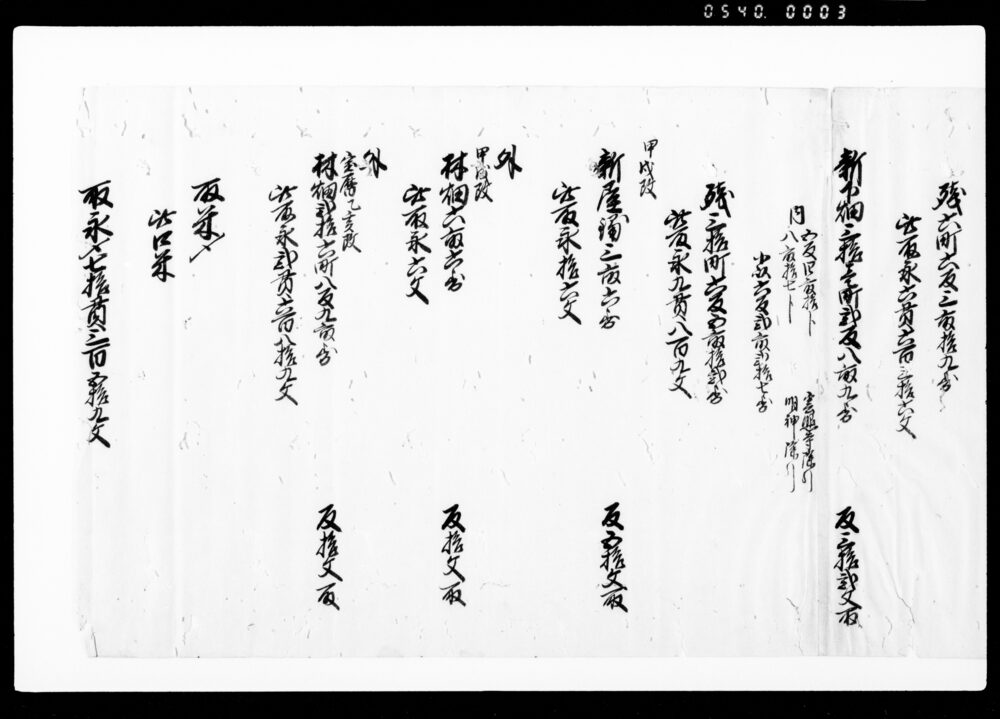 0540. 0003
残六町六反三畝拾九歩
此取永六貫六百三拾六文
新下畑三拾壱町弐反八畝九歩 反三拾弐文取
内 五反四畝拾卜 寺除引
八畝拾七卜 明神除引
小以六反弐畝弐拾七歩
残三拾町六反五畝拾弐歩
此取永九貫八百九文
甲戌改
新屋鋪三畝六歩 反五拾文取
此取永拾六文
外
甲戌改
林畑六畝六歩 反拾文取
此取永六文
外
宝暦乙亥改
林畑弐拾六町八反九畝歩 反拾文取
此取永弐貫六百八拾九文
取米〆
此口米
取永〆七拾貫三百五拾九文